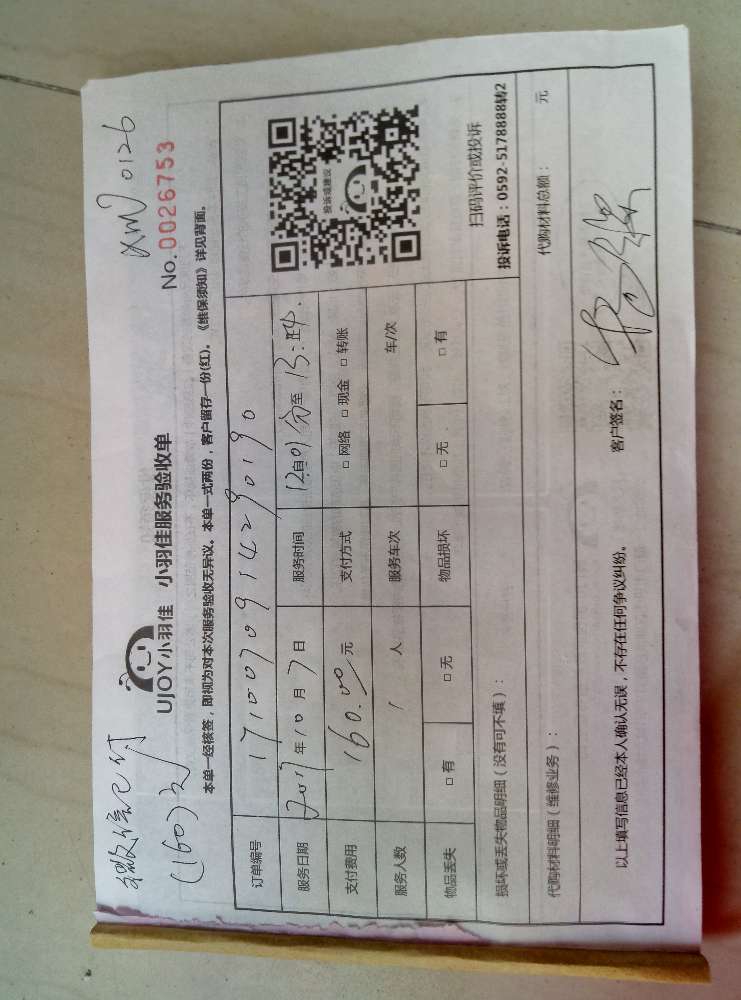 微信已付
(160)元
xm 0126
UJOY小羽佳 小羽佳服务验收单
No.0026753
本单一经核签，即视为对本次服务验收无异议。本单一式两份，客户留存一份(红)。《维保须知》详见背面。
订单编号 1710070914290190
服务日期 2017年10月7日 服务时间 12自01分至13:
支付费用 160.00元 支付方式 □网络 □现金 □转账
服务人数 1 人 服务车次 车/次
物品丢失 □有 □无 物品损坏 □无 □有
投诉或建议
扫码评价或投诉
投诉电话：0592-5178888转2
损坏或丢失物品明细（没有可不填）：
代购材料明细（维修业务）： 代购材料总额： 元
以上填写信息已经本人确认无误，不存在任何争议纠纷。 客户签名：